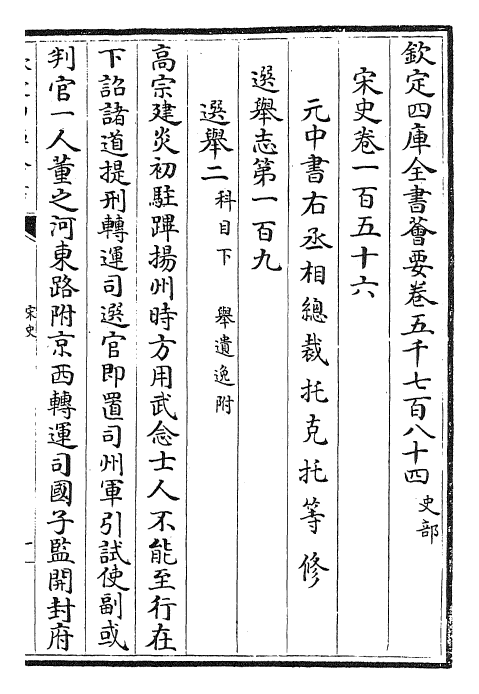 欽定四庫全書薈要卷五千七百八十四 史部
宋史卷一百五十六
元中書右丞相總裁托克托等修
選舉志第一百九
選舉二 科目下 舉遺逸附
高宗建炎初駐蹕揚州時方用武念士人不能至行在
下詔諸道提刑轉運司選官即置司州軍引試使副或
判官一人董之河東路附京西轉運司國子監開封府
宋史